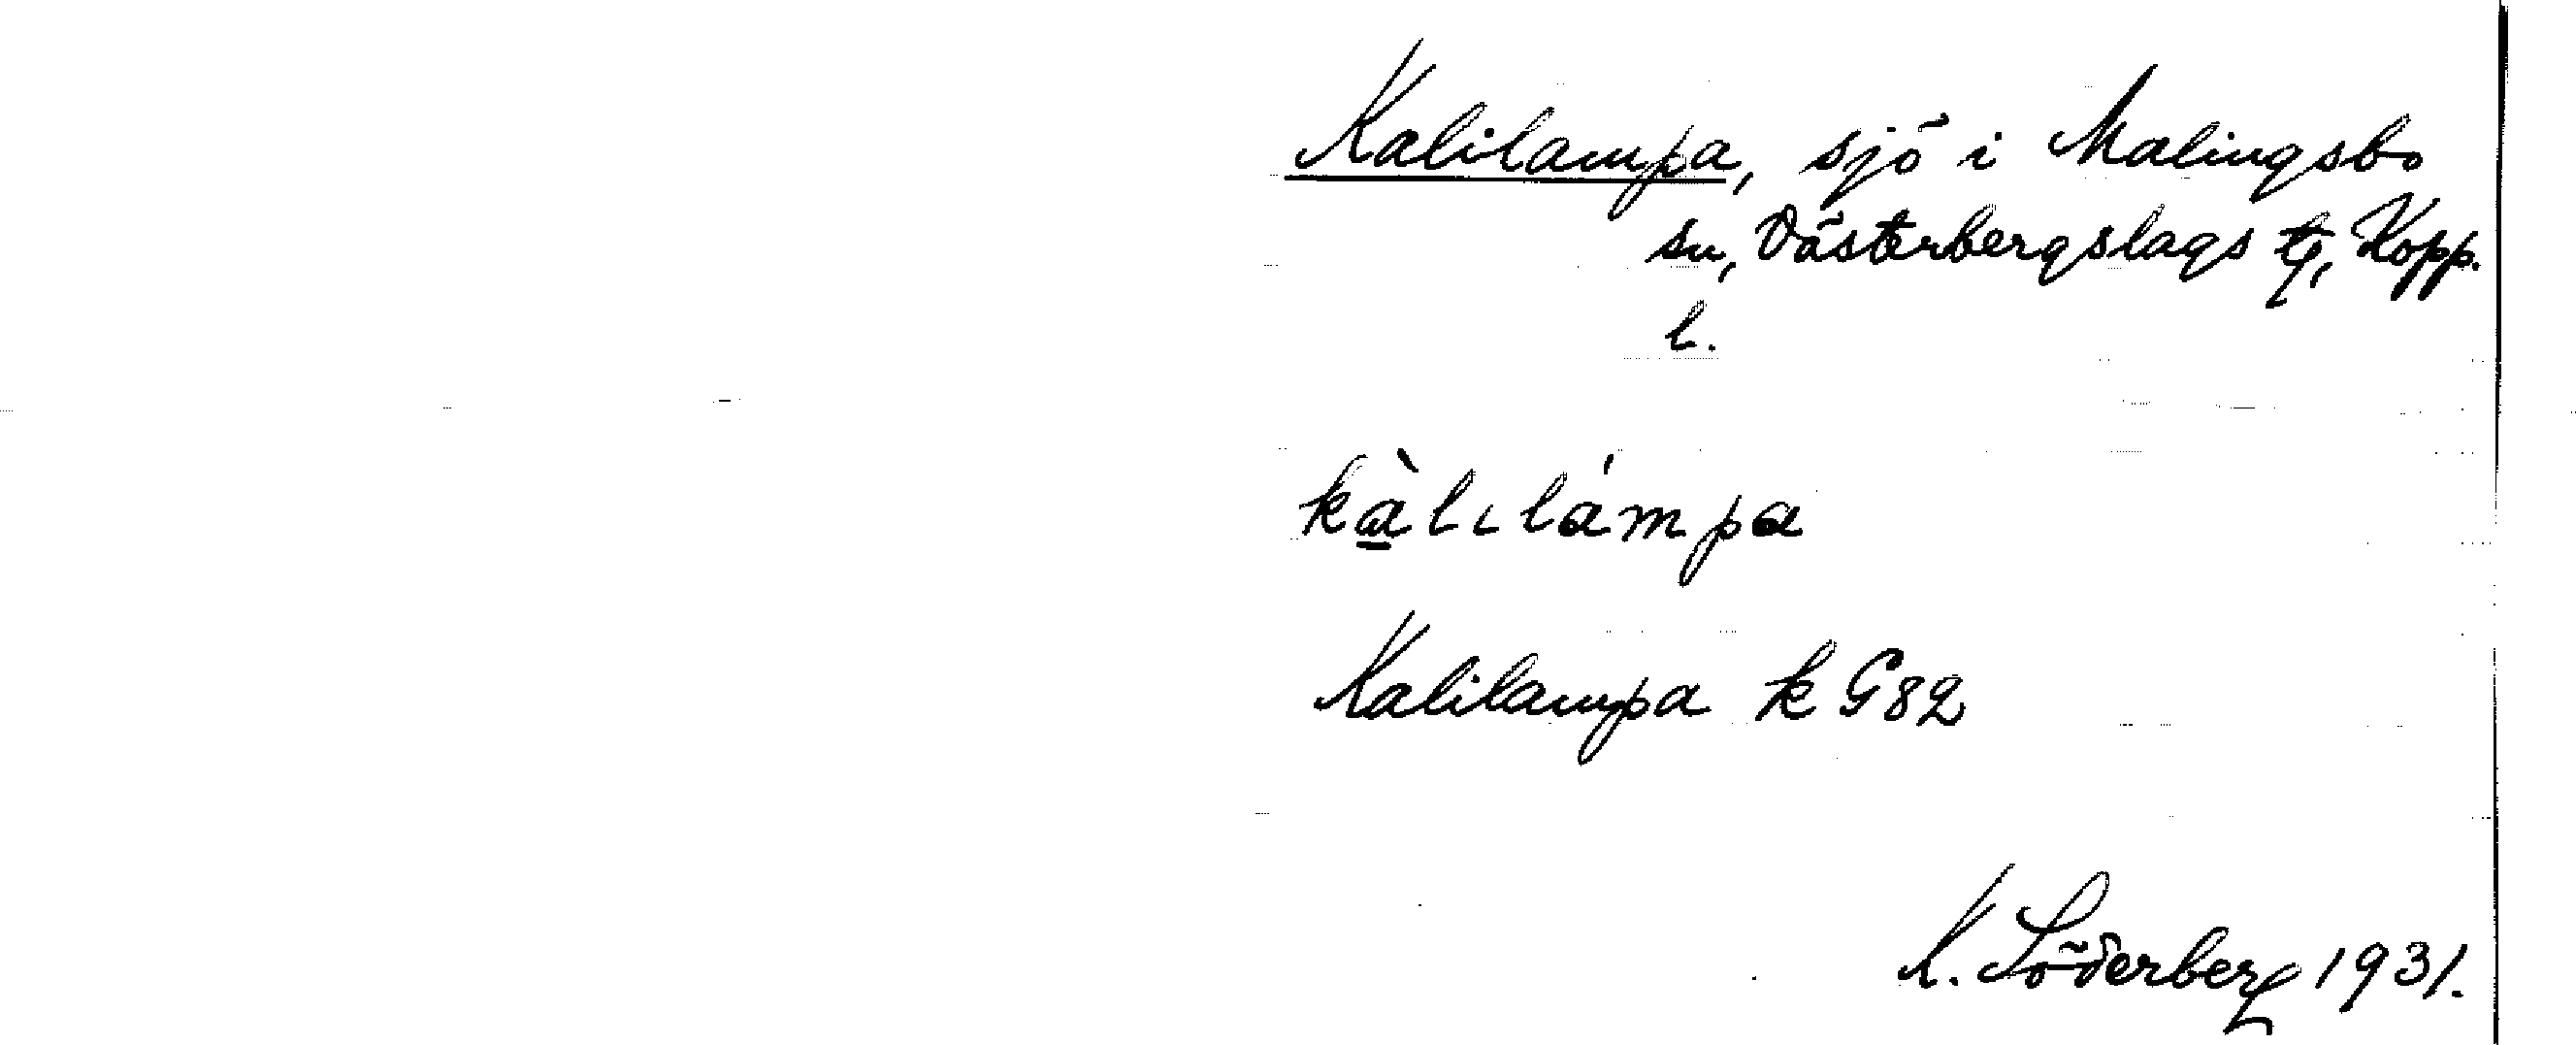 Kalilampa, sjö i Malingsbo
sn, Västerbergslags tg, Kopp.
l.
kàlılámpa
Kalilampa k G82
K. Söderberg 1931.